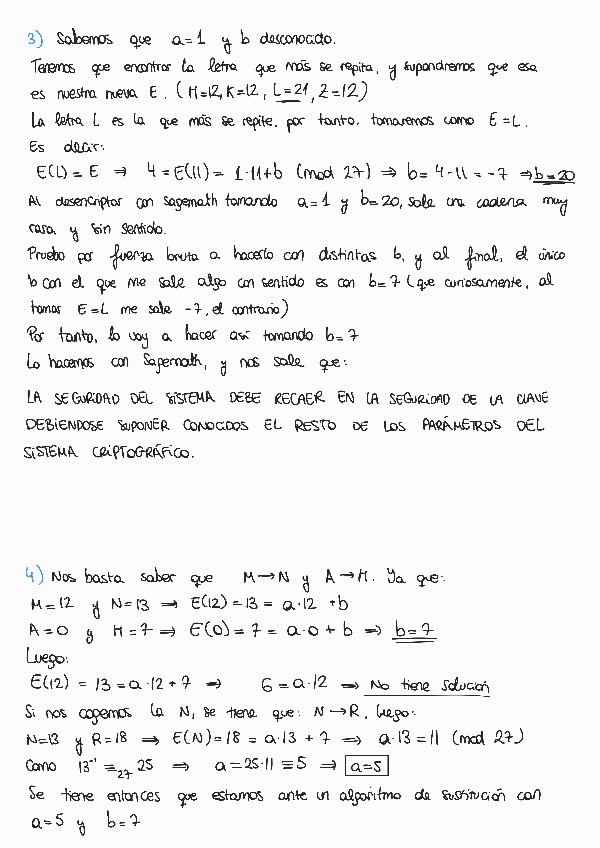 3) Sabemos que a=1 y b desconocido.
Tenemos que encontrar la letra que más se repita, y supondremos que esa
es nuestra nueva E. (H=12, K=12, L=21, Z=12)
La letra L es la que más se repite, por tanto, tomaremos como E=L.
Es decir:
E(L) = E ⇒ 4 = E(11) = 1·11+b (mod 27) ⇒ b = 4-11 = -7 ⇒ b=20
Al desencriptar con sagemath tomando a=1 y b=20, sale una cadena muy
rara y sin sentido.
Pruebo por fuerza bruta a hacerlo con distintas b, y al final, el único
b con el que me sale algo con sentido es con b=7 (que curiosamente, al
tomar E=L me sale -7, el contrario)
Por tanto, lo voy a hacer así tomando b=7
Lo hacemos con Sagemath, y nos sale que:
LA SEGURIDAD DEL SISTEMA DEBE RECAER EN LA SEGURIDAD DE LA CLAVE
DEBIENDOSE SUPONER CONOCIDOS EL RESTO DE LOS PARÁMETROS DEL
SISTEMA CRIPTOGRÁFICO.
4) Nos basta saber que M→N y A→H. Ya que:
M=12 y N=13 ⇒ E(12) = 13 = a·12 + b
A=0 y H=7 ⇒ E(0) = 7 = a·0 + b ⇒ b=7
Luego:
E(12) = 13 = a·12 + 7 ⇒ 6 = a·12 ⇒ No tiene solución
Si nos cogemos la N, se tiene que: N→R, luego:
N=13 y R=18 ⇒ E(N) = 18 = a·13 + 7 ⇒ a·13 = 11 (mod 27)
Como 13⁻¹ ≡₂₇ 25 ⇒ a = 25·11 ≡ 5 ⇒ a=5
Se tiene entonces que estamos ante un algoritmo de sustitución con
a=5 y b=7